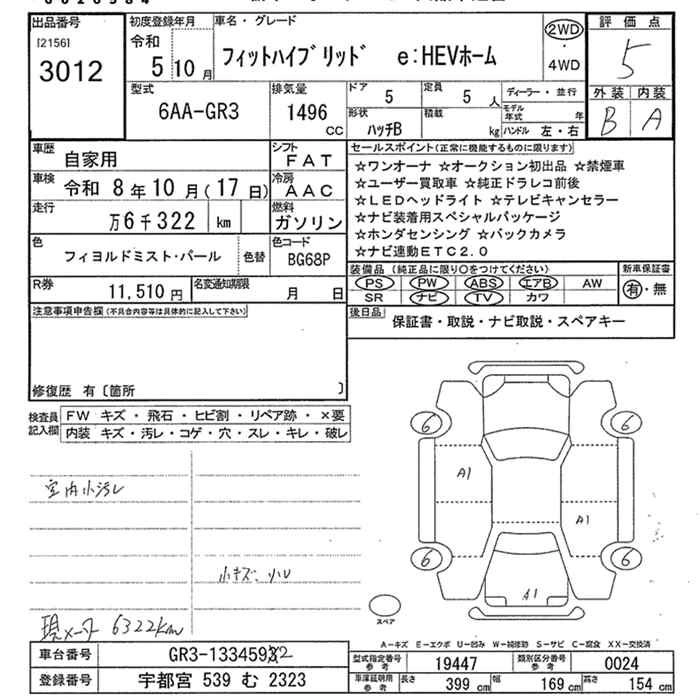 出品番号
[2156]
3012
初度登録年月
令和
5 10 月
車名・グレード
フィットハイブリッド e:HEVホーム
2WD
・
4WD
評価点
5
外装 内装
B A
型式
6AA-GR3
排気量
1496
CC
ドア 5
定員 5 人
形状
ハッチB
積載
kg
ディーラー・並行
モデル年式 年
ハンドル 左・右
車歴 自家用
シフト
FAT
車検 令和 8 年 10 月 (17 日)
冷房
AAC
走行 万 6 千 322 km
燃料
ガソリン
色 フィヨルドミスト・パール
色替
色コード
BG68P
R券 11,510 円
名変通知期限 月 日
セールスポイント(正常に機能するものに限ります)
☆ワンオーナ ☆オークション初出品 ☆禁煙車
☆ユーザー買取車 ☆純正ドラレコ前後
☆LEDヘッドライト ☆テレビキャンセラー
☆ナビ装着用スペシャルパッケージ
☆ホンダセンシング ☆バックカメラ
☆ナビ連動ETC2.0
装備品 (純正品に限り○をつけてください)
PS PW ABS エアB AW
SR ナビ TV カワ
新車保証書
有・無
後日品 保証書・取説・ナビ取説・スペアキー
注意事項申告欄(不具合内容等は具体的に記入して下さい)
修復歴 有 [箇所 ]
検査員記入欄
FW キズ・飛石・ヒビ割・リペア跡・×要
内装 キズ・汚レ・コゲ・穴・スレ・キレ・破レ
室内小汚レ
小キズ、小U
現メーター 6322km
6 6
A1
A1
6 6
A1
スペア
A-キズ E-エクボ U-凹み W-補修跡 S-サビ C-腐食 XX-交換済
車台番号 GR3-1334593 32
登録番号 宇都宮 539 む 2323
型式指定番号 参考 19447
類別区分番号 参考 0024
車庫証明用 参考 長さ 399 cm 幅 169 cm 高さ 154 cm